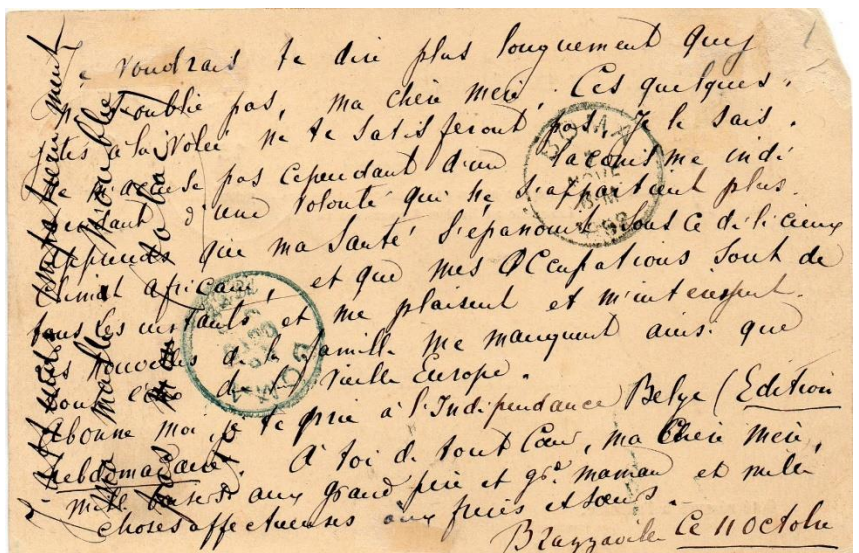 e voudrais te dire plus longuement que j
n'oublie pas, ma chère mère. Ces quelques
jetés à la volée ne te satisferont pas, je le sais.
ne m'accuse pas cependant d'un laconisme indé
pendant d'une volonté qui ne s'appartient plus.
apprends que ma santé s'épanouit sous ce délicieux
climat africain, et que mes occupations sont de
tous les instants et me plaisent et m'intéressent.
Les nouvelles de la famille me manquent ainsi que
l' de la vieille Europe.
Abonne moi, je te prie à l'Indépendance Belge (Edition
hebdomadaire). A toi de tout cœur, ma chère mère,
mille baisers aux grand père et gd. maman et mille
choses affectueuses aux frères et sœurs.
Brazzaville Ce 11 octobre
J'attends impatiemment
malle. N'oublie
pas mon tabac
BOMA
NOVE
BOMA